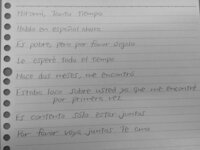 Hiromi, Tanto tiempo
Hablo en español ahora
Es pobre, pero por favor sigalo
Le esperé todo el tiempo
Hace dos meses, me encontró
Estaba loco sobre usted ya que me encontré
por primera vez
Es contento sólo estar juntos
Por favor vaya juntos. Te amo